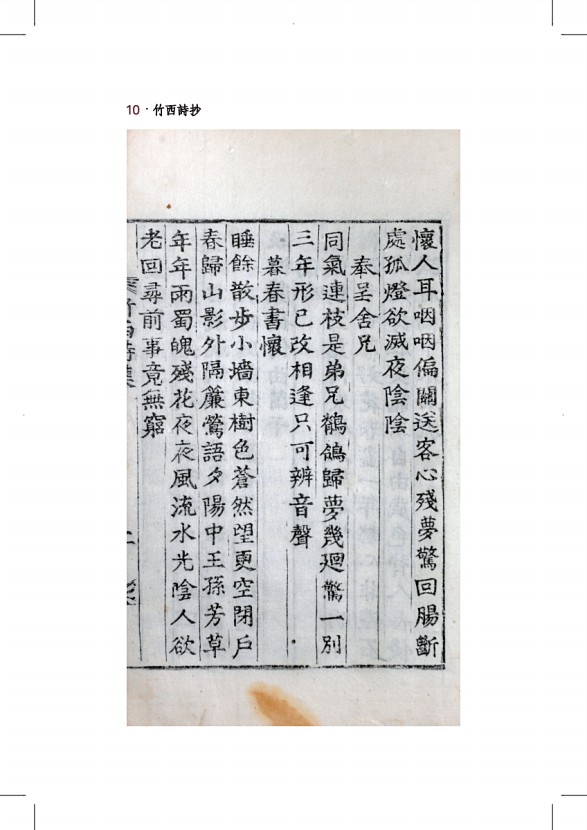 10 · 竹西詩抄
懷人耳咽咽偏關送客心殘夢驚回腸斷
處孤燈欲滅夜陰陰
奉呈舍兄
同氣連枝是弟兄鶺鴒歸夢幾廻驚一別
三年形已改相逢只可辨音聲
暮春書懷
睡餘散步小墻東樹色蒼然望更空閉戶
春歸山影外隔簾鶯語夕陽中王孫芳草
年年雨蜀魄殘花夜夜風流水光陰人欲
老回尋前事竟無窮
竹西詩集
二